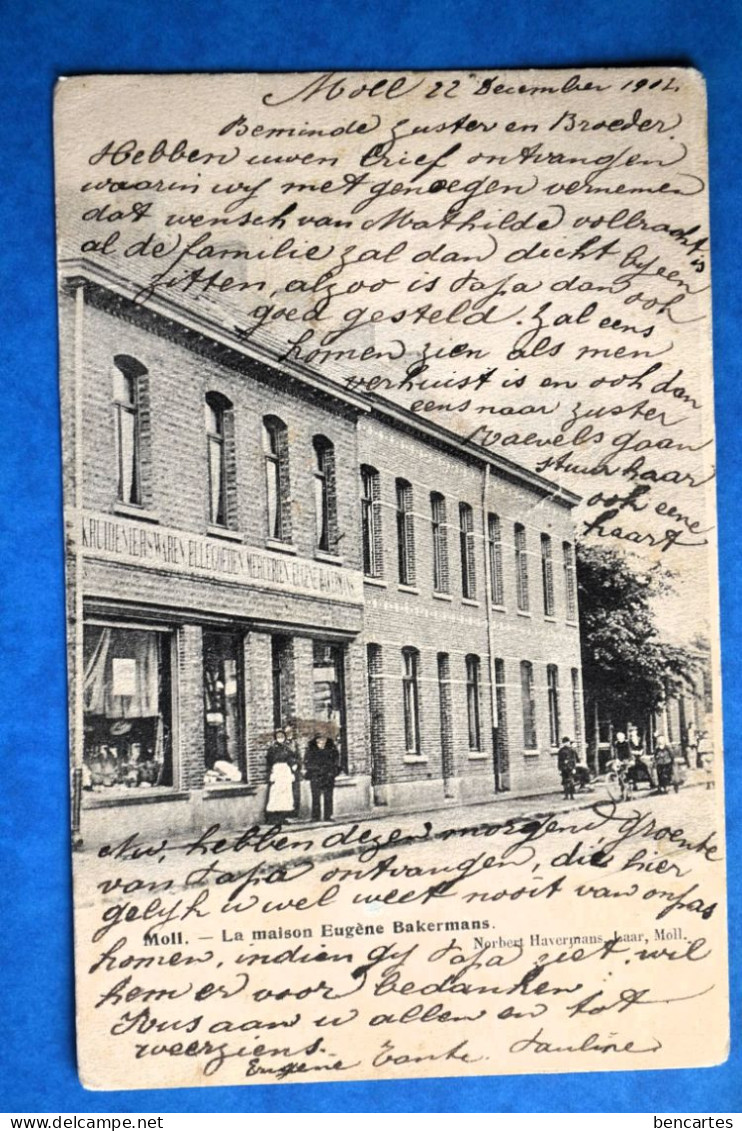 Moll 22 December 1902.
Beminde Zuster en Broeder.
Hebben uwen brief ontvangen
waarin wij met genoegen vernemen
dat wensch van Mathilde volbracht is
al de familie zal dan dicht bijeen
zitten, alzoo is Papa dan ook
goed gesteld. Zal eens
komen zien als men
verhuist is en ook dan
eens naar zuster
gaan
stuur haar
ook eene
kaart
KRUIDENIERSWAREN ELLEGOEDEN MERCERIEN EUGENE BAKERMANS
Nu, hebben dezen morgend, groente
van Papa ontvangen, die hier
gelijk u wel weet nooit van onpas
Moll. — La maison Eugène Bakermans.
Norbert Havermans, Laar, Moll.
komen, indien gij Papa ziet, wil
hem er voor bedanken.
Kus aan u allen en tot
weerziens.
Eugène Tante Pauline
bencartes